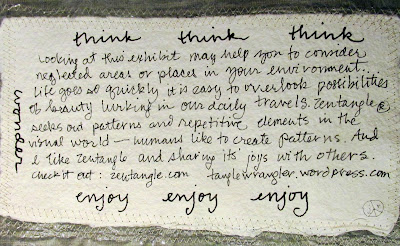 think think think
Looking at this exhibit may help you to consider
neglected areas or places in your environment.
Life goes so quickly it is easy to overlook possibilities
of beauty lurking in our daily travels. Zentangle®
seeks out patterns and repetitive elements in the
visual world — humans like to create patterns. And
I like Zentangle and sharing its joys with others.
check it out: zentangle.com tanglewrangler.wordpress.com
enjoy enjoy enjoy
wonder